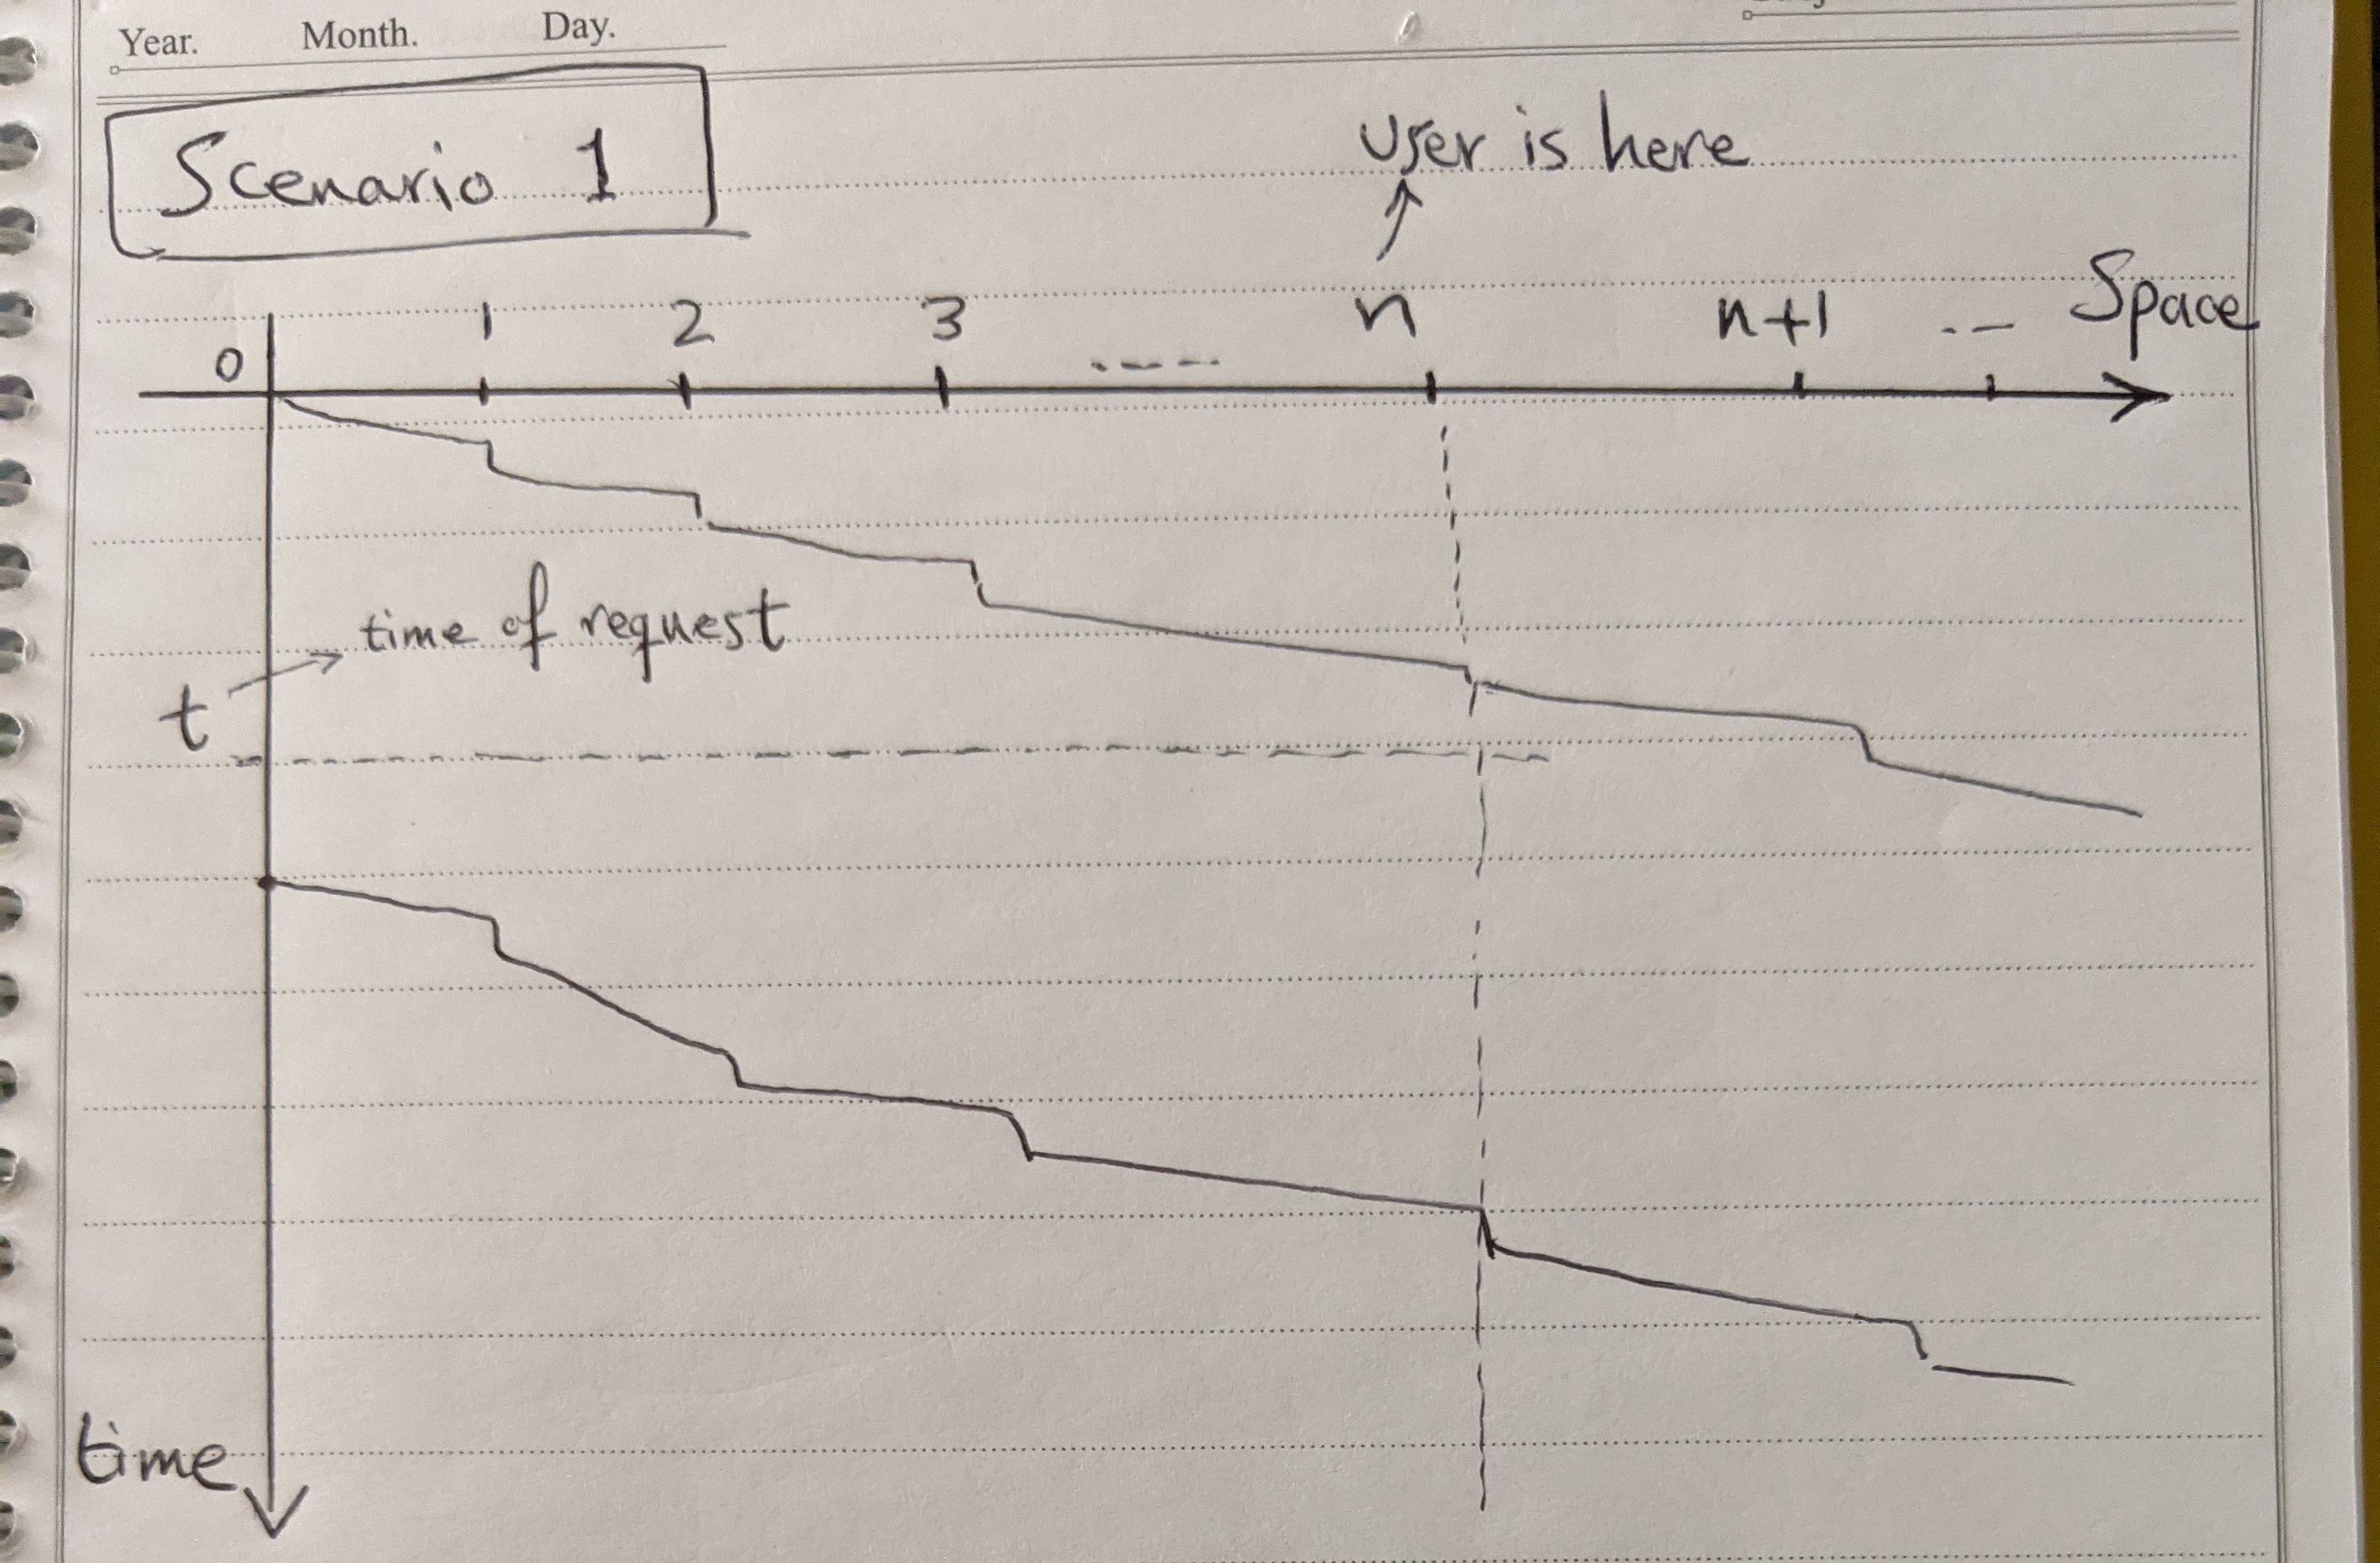 Year. Month. Day.
Scenario 1
User is here
0 1 2 3 ----- n n+1 -- Space
time of request
t
time